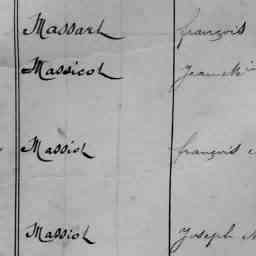 Massart françois
Massicot Jeanne
Massiot françois
Massiot Joseph